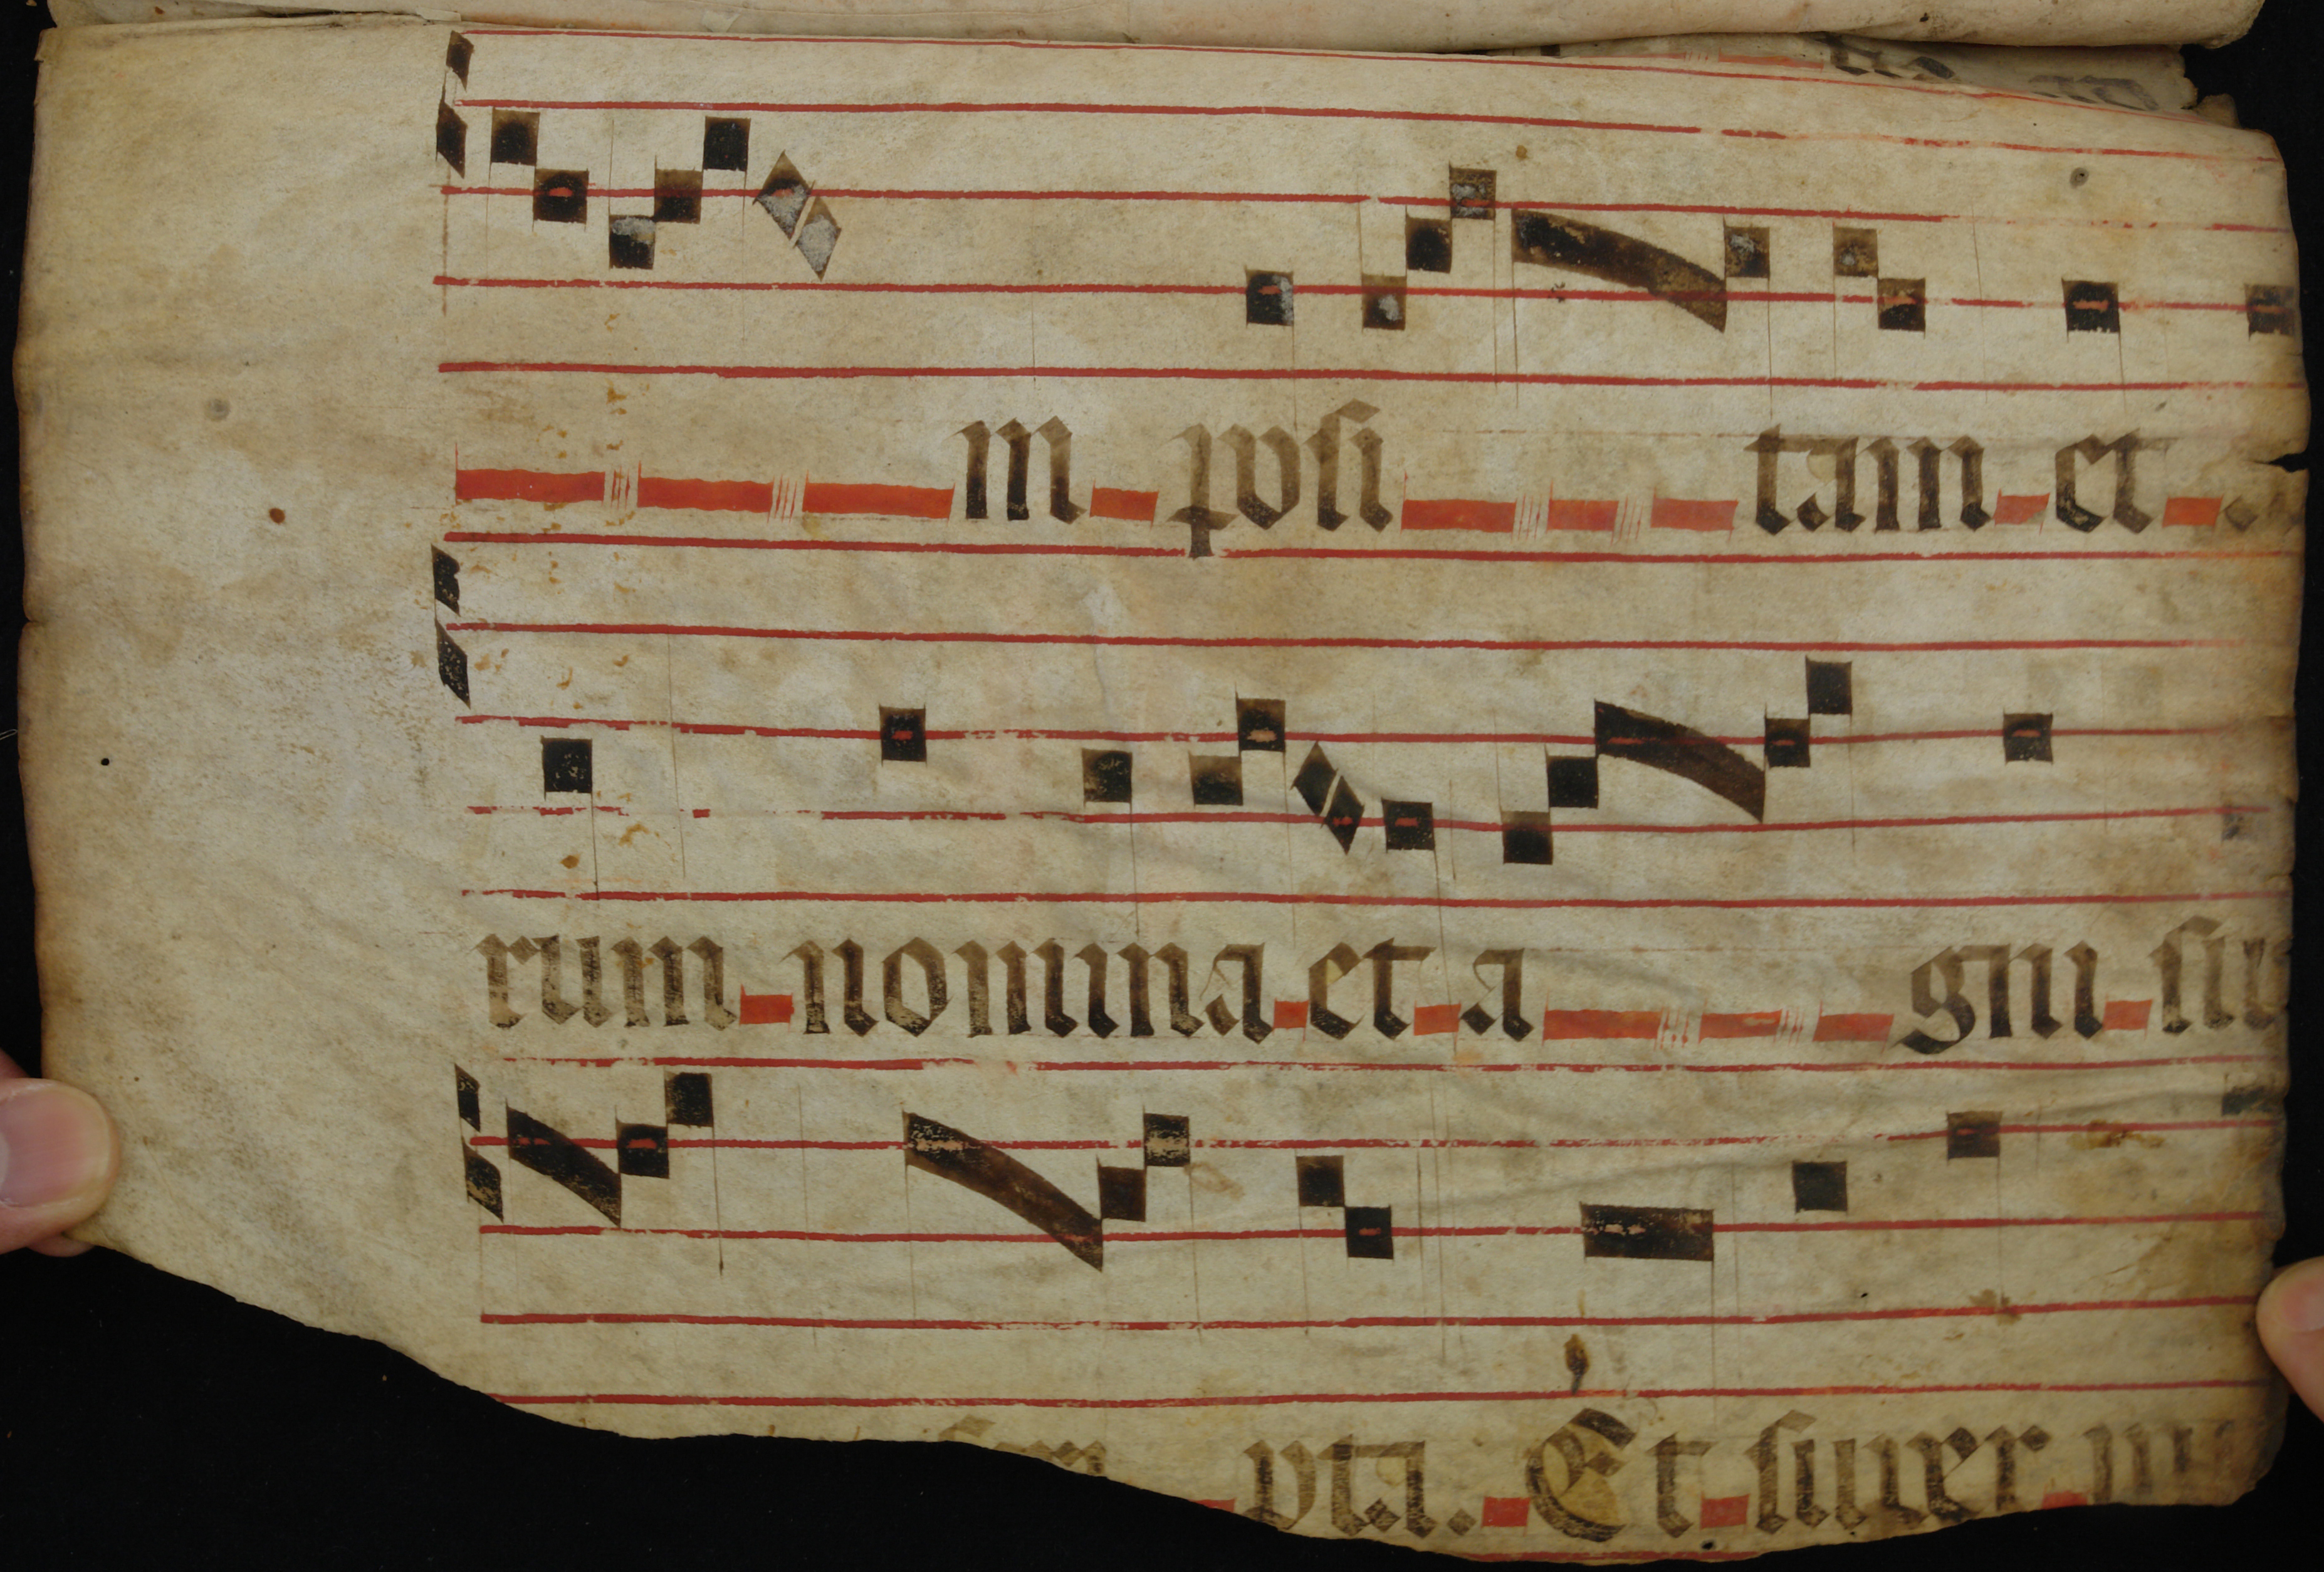 m posi tam et
rum nomina et a gni su
pta. Et super mu